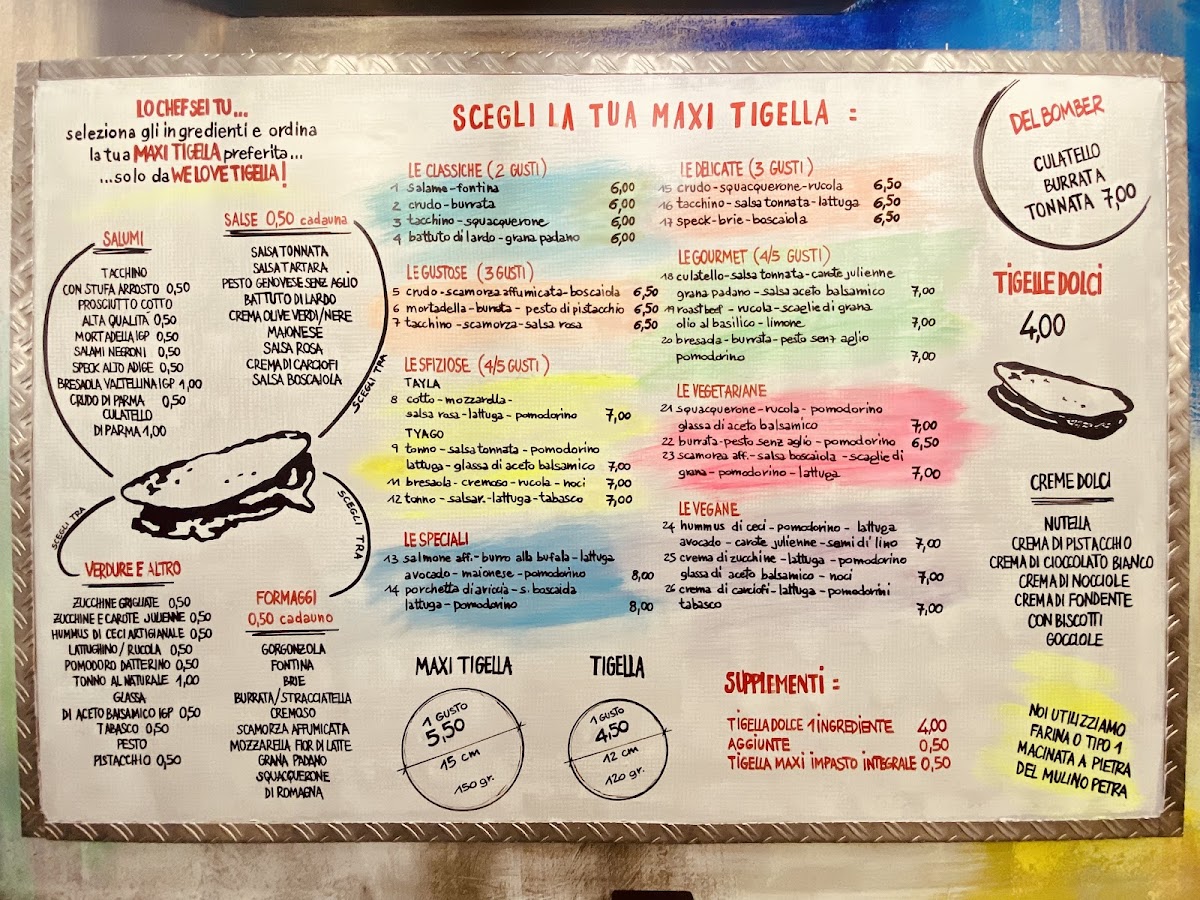 LO CHEF SEI TU...
seleziona gli ingredienti e ordina
la tua MAXI TIGELLA preferita...
...solo da WE LOVE TIGELLA!
SALUMI
TACCHINO
CON STUFA ARROSTO 0,50
PROSCIUTTO COTTO
ALTA QUALITÀ 0,50
MORTADELLA IGP 0,50
SALAMI NEGRONI 0,50
SPECK ALTO ADIGE 0,50
BRESAOLA VALTELLINA IGP 1,00
CRUDO DI PARMA 0,50
CULATELLO
DI PARMA 1,00
SALSE 0,50 cadauna
SALSA TONNATA
SALSA TARTARA
PESTO GENOVESE SENZ AGLIO
BATTUTO DI LARDO
CREMA OLIVE VERDI/NERE
MAIONESE
SALSA ROSA
CREMA DI CARCIOFI
SALSA BOSCAIOLA
SCEGLI TRA
SCEGLI TRA
SCEGLI TRA
VERDURE E ALTRO
ZUCCHINE GRIGLIATE 0,50
ZUCCHINE E CAROTE JULIENNE 0,50
HUMMUS DI CECI ARTIGIANALE 0,50
LATTUGHINO / RUCOLA 0,50
POMODORO DATTERINO 0,50
TONNO AL NATURALE 1,00
GLASSA
DI ACETO BALSAMICO IGP 0,50
TABASCO 0,50
PESTO
PISTACCHIO 0,50
FORMAGGI
0,50 cadauno
GORGONZOLA
FONTINA
BRIE
BURRATA/STRACCIATELLA
CREMOSO
SCAMORZA AFFUMICATA
MOZZARELLA FIOR DI LATTE
GRANA PADANO
SQUACQUERONE
DI ROMAGNA
SCEGLI LA TUA MAXI TIGELLA :
LE CLASSICHE (2 GUSTI)
1 salame-fontina 6,00
2 crudo-burrata 6,00
3 tacchino-squacquerone 6,00
4 battuto di lardo-grana padano 6,00
LE GUSTOSE (3 GUSTI)
5 crudo-scamorza affumicata-boscaiola 6,50
6 mortadella-burrata-pesto di pistacchio 6,50
7 tacchino-scamorza-salsa rosa 6,50
LE SFIZIOSE (4/5 GUSTI)
TAYLA
8 cotto-mozzarella-
salsa rosa-lattuga-pomodorino 7,00
TYAGO
9 tonno-salsa tonnata-pomodorino
lattuga-glassa di aceto balsamico 7,00
11 bresaola-cremoso-rucola-noci 7,00
12 tonno-salsar.-lattuga-tabasco 7,00
LE SPECIALI
13 salmone aff.-burro alla bufala-lattuga
avocado-maionese-pomodorino 8,00
14 porchetta di ariccia-s. boscaida
lattuga-pomodorino 8,00
MAXI TIGELLA
1 GUSTO
5,50
15 cm
150 gr.
TIGELLA
1 GUSTO
4,50
12 cm
120 gr.
LE DELICATE (3 GUSTI)
15 crudo-squacquerone-rucola 6,50
16 tacchino-salsa tonnata-lattuga 6,50
17 speck-brie-boscaiola 6,50
LE GOURMET (4/5 GUSTI)
18 culatello-salsa tonnata-carote julienne
grana padano-salsa aceto balsamico 7,00
19 roastbeef-rucola-scaglie di grana
olio al basilico-limone 7,00
20 bresada-burrata-pesto senz aglio
pomodorino 7,00
LE VEGETARIANE
21 squacquerone-rucola-pomodorino
glassa di aceto balsamico 7,00
22 burrata-pesto senz aglio-pomodorino 6,50
23 scamorza aff.-salsa boscaiola-scaglie di
grana-pomodorino-lattuga 7,00
LE VEGANE
24 hummus di ceci-pomodorino-lattuga
avocado-carote julienne-semi di' lino 7,00
25 crema di zucchine-lattuga-pomodorino
glassa di aceto balsamico-noci 7,00
26 crema di carciofi-lattuga-pomodorini
tabasco 7,00
SUPPLEMENTI :
TIGELLA DOLCE 1 INGREDIENTE 4,00
AGGIUNTE 0,50
TIGELLA MAXI IMPASTO INTEGRALE 0,50
DEL BOMBER
CULATELLO
BURRATA
TONNATA 7,00
TIGELLE DOLCI
4,00
CREME DOLCI
NUTELLA
CREMA DI PISTACCHIO
CREMA DI CIOCCOLATO BIANCO
CREMA DI NOCCIOLE
CREMA DI FONDENTE
CON BISCOTTI
GOCCIOLE
NOI UTILIZZIAMO
FARINA 0 TIPO 1
MACINATA A PIETRA
DEL MULINO PETRA